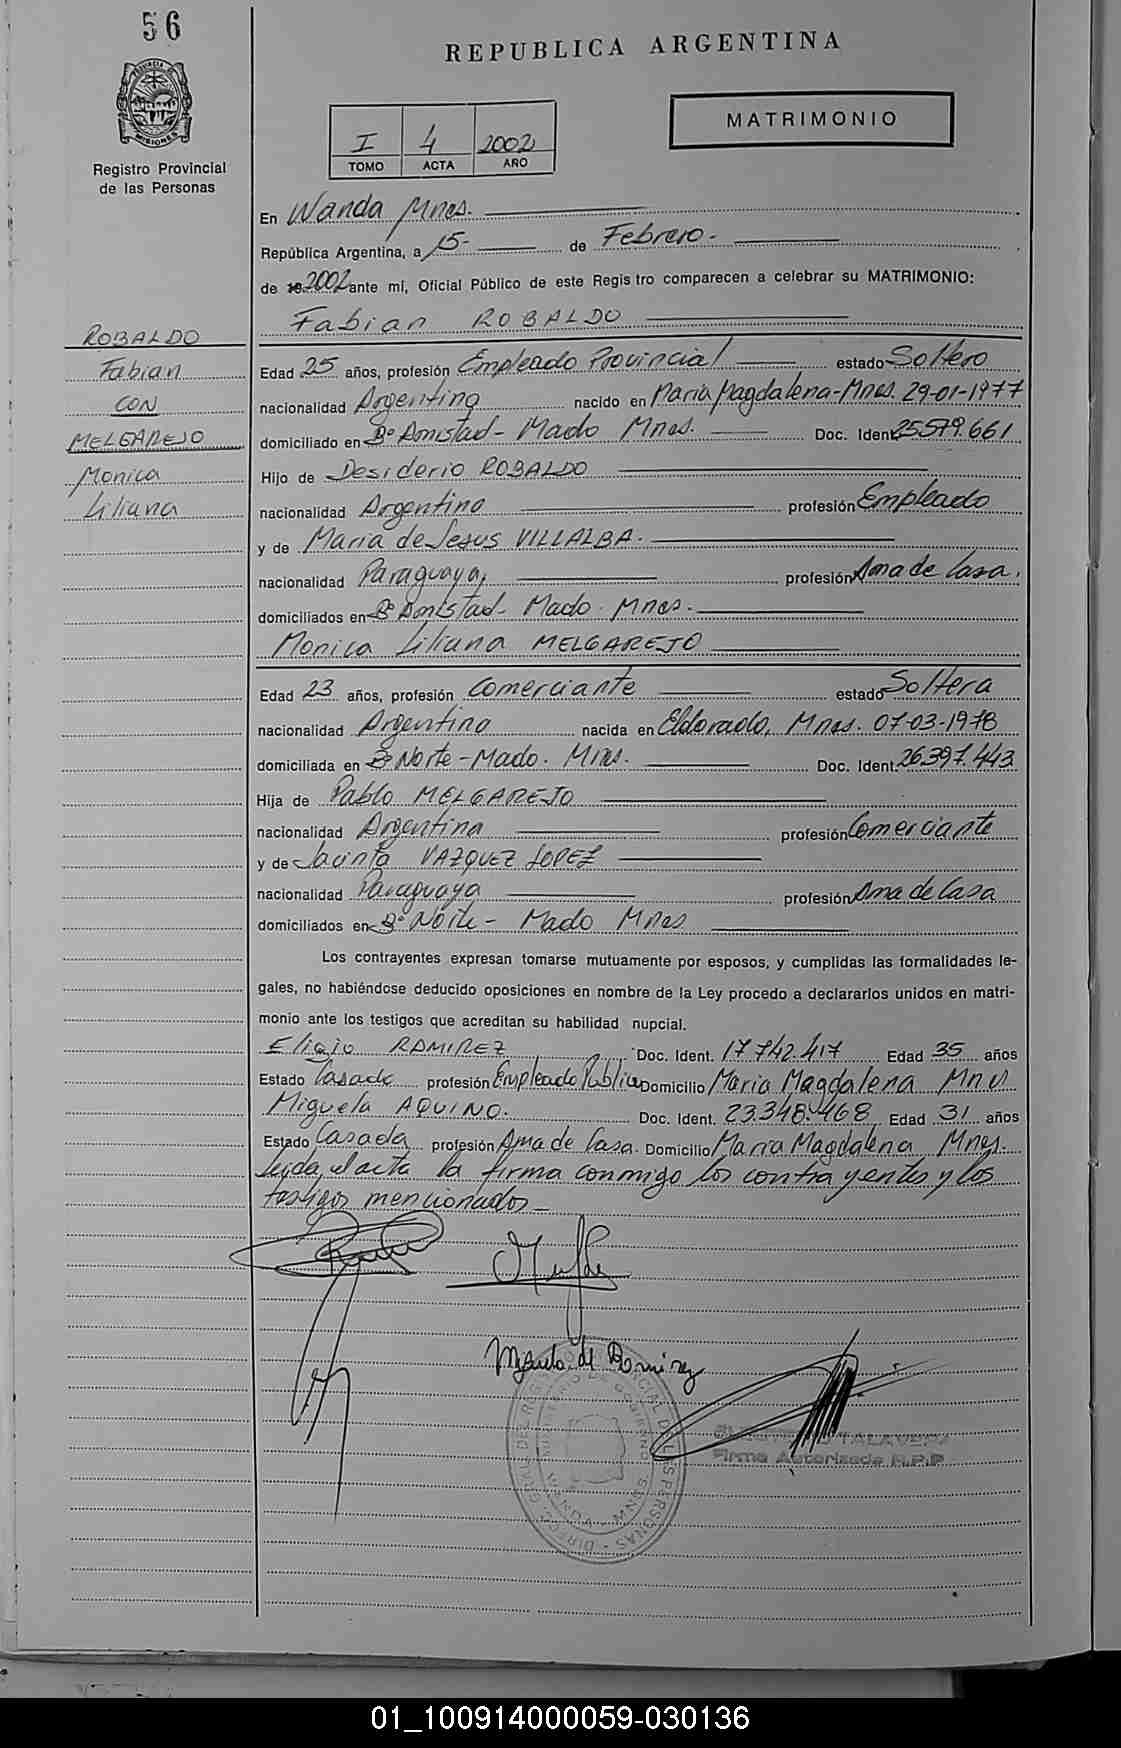 56
REPUBLICA ARGENTINA
MATRIMONIO
I 4 2002
TOMO ACTA AÑO
Registro Provincial
de las Personas
En Wanda Mnes.
República Argentina, a 15- de Febrero.
de 2002 ante mí, Oficial Público de este Registro comparecen a celebrar su MATRIMONIO:
Fabian ROBALDO
ROBALDO
Fabian
CON
MELGAREJO
Monica
Liliana
Edad 25 años, profesión Empleado Provincial estado Soltero
nacionalidad Argentina nacido en Maria Magdalena-Mnes. 29-01-1977
domiciliado en Bº Amistad- Mado Mnes. Doc. Ident. 25579.661
Hijo de Desiderio ROBALDO
nacionalidad Argentina profesión Empleado
y de Maria de Jesus VILLALBA.
nacionalidad Paraguaya, profesión Ama de Casa.
domiciliados en Bº Amistad- Mado. Mnes.
Monica Liliana MELGAREJO
Edad 23 años, profesión Comerciante estado Soltera
nacionalidad Argentina nacida en Eldorado, Mnes. 07-03-1978
domiciliada en Bº Norte-Mado. Mnes. Doc. Ident. 26.397.443
Hija de Pablo MELGAREJO
nacionalidad Argentina profesión Comerciante
y de Jacinta VAZQUEZ LOPEZ
nacionalidad Paraguaya profesión Ama de Casa
domiciliados en Bº Norte- Mado Mnes
Los contrayentes expresan tomarse mutuamente por esposos, y cumplidas las formalidades le-
gales, no habiéndose deducido oposiciones en nombre de la Ley procedo a declararlos unidos en matri-
monio ante los testigos que acreditan su habilidad nupcial.
Eligio RAMIREZ Doc. Ident. 17 742.417 Edad 35 años
Estado Casado profesión Empleado Publico Domicilio Maria Magdalena Mnes
Miguela AQUINO. Doc. Ident. 23.348.468 Edad 31 años
Estado Casada profesión Ama de Casa. Domicilio Maria Magdalena Mnes.
Leida el acta la firma conmigo los contrayentes y los
testigos mencionados-
de Ramirez
TALAVERA
Firma Autorizada R.P.P
01_100914000059-030136